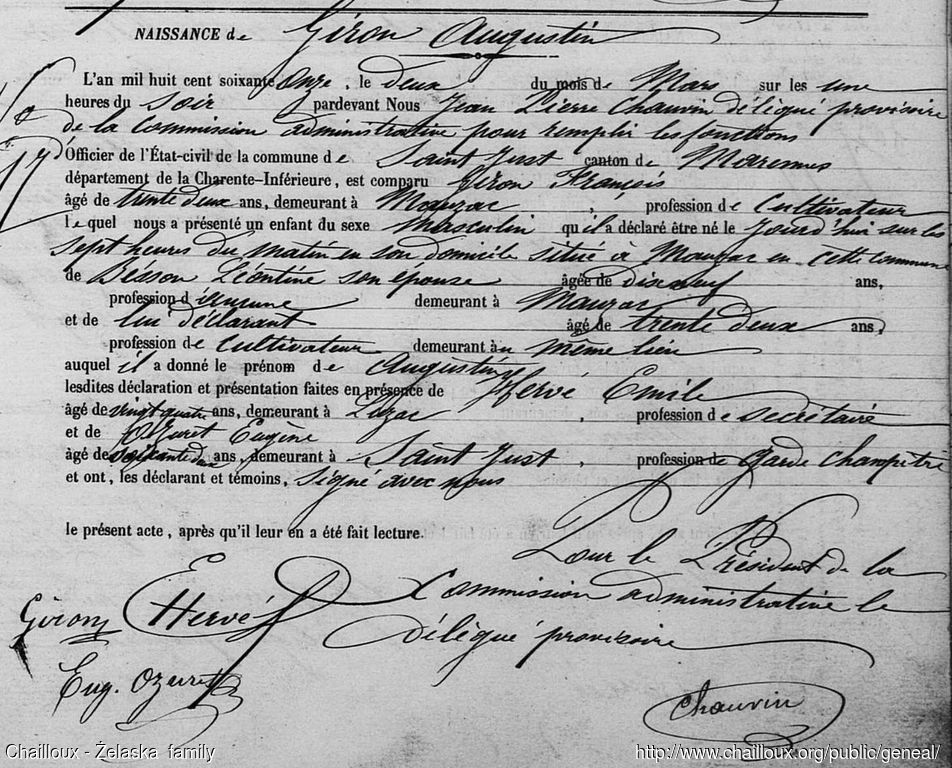 NAISSANCE de Giron Augustin
L'an mil huit cent soixante onze, le deux du mois de Mars sur les une
heures du Soir pardevant Nous Jean Pierre Chauvin délégué provisoire
de la Commission administrative pour remplir les fonctions
Officier de l'État-civil de la commune de Saint Just canton de Marennes
département de la Charente-Inférieure, est comparu Giron François
âgé de trente deux ans, demeurant à Mauzac, profession de Cultivateur
lequel nous a présenté un enfant du sexe masculin qu'il a déclaré être né le jourd'hui sur les
sept heures du matin en son domicile situé à Mauzac en cette commune
de Besson Léontine son épouse âgée de dix neuf ans,
profession d'aucune demeurant à Mauzac
et de lui déclarant âgé de trente deux ans,
profession de cultivateur demeurant au même lieu
auquel il a donné le prénom de Augustin
lesdites déclaration et présentation faites en présence de Hervé Emile
âgé de vingt quatre ans, demeurant à Luzac, profession de secrétaire
et de Ozuret Eugène
âgé de soixante deux ans, demeurant à Saint Just, profession de garde champêtre
et ont, les déclarant et témoins, signé avec nous
le présent acte, après qu'il leur en a été fait lecture.
Pour le Président de la
Commission administrative le
délégué provisoire
Giron Hervé
Eug. Ozuret
Chauvin
Chailloux - Żelaska family
http://www.chailloux.org/public/geneal/